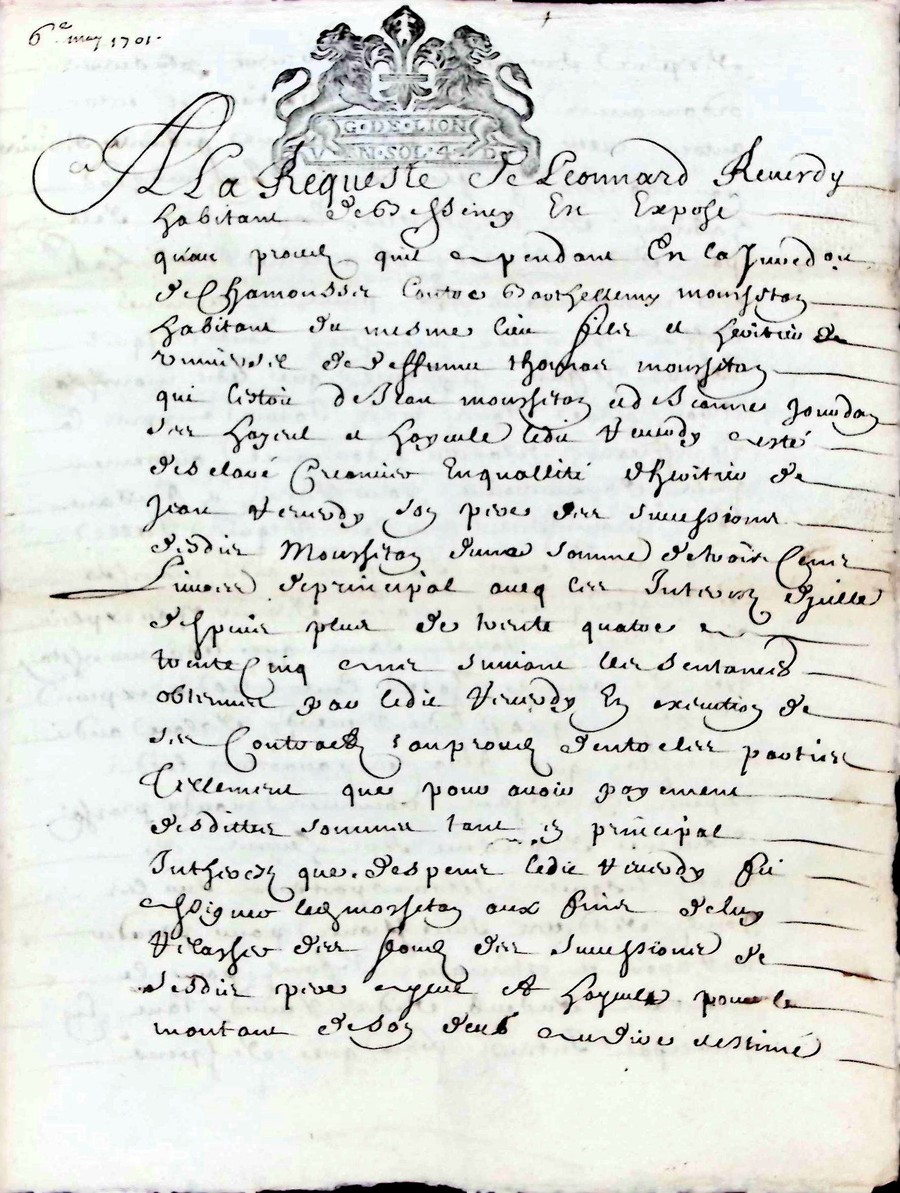 6e may 1701
G·DE·LION
UN·SOL·4·D
A La Requeste de Leonnard Reverdy
habitant de Bessenay Est Expose
quau proces quil a pendant En la Jurisdon
de Chamousset Contre Barthellemy mousseton
habitant du mesme lieu fils et heritier
universel de deffunct thomas mousseton
qui lestoit de Jean mousseton et de Jeanne Jourdan
ses hayeul et hayeule ledit Reverdy a esté
desclaré Creancier En quallité dheritier de
Jean Reverdy son pere des successions
desdits Mousseton dune somme de trois Cents
Livres de principal avecq les Interestz dicelle
despuis plus de trente quatre a
trente Cinq annes suivant les sentances
obtenues par ledit Reverdy En execution de
ses Contractz au proces dentre les parties
Tellement que pour avoir payement
desdittes sommes tant en principal
Intherestz que despens ledit Reverdy fit
assigner led mosseton aux fins de luy
relascher des fondz des successions de
sesdits pere ayeul et hayeule pour le
montant de son deub a dire destimé